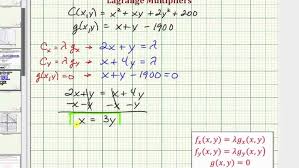 Lagrange Multipliers
C(x,y) = x² + xy + 2y² + 200
g(x,y) = x + y - 1900
Cₓ = λ gₓ → 2x + y = λ
Cᵧ = λ gᵧ → x + 4y = λ
g(x,y) = 0 → x + y - 1900 = 0
2x + y = x + 4y
-x - y -x - y
x = 3y
fₓ(x,y) = λgₓ(x,y)
fᵧ(x,y) = λgᵧ(x,y)
g(x,y) = 0